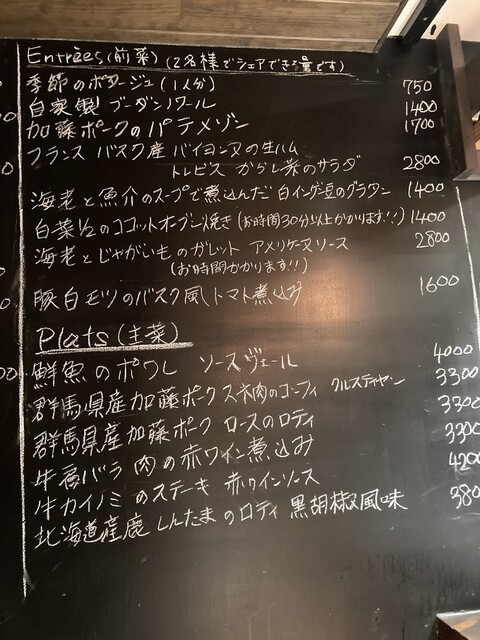 Entrées (前菜) (2名様でシェアできる量です)
季節のポタージュ (1人分) 750
自家製 ブーダンノワール 1400
加藤ポークのパテメゾン 1700
フランス バスク産 バイヨンヌの生ハム
トレビス からし菜のサラダ 2800
海老と魚介のスープで煮込んだ 白インゲン豆のグラタン 1400
白菜1/2のココットオーブン焼き (お時間30分以上かかります!!) 1400
海老とじゃがいものガレット アメリケーヌソース 2800
(お時間かかります!!)
豚白モツのバスク風トマト煮込み 1600
Plats (主菜)
鮮魚のポワレ ソースヴェール 4000
群馬県産加藤ポーク スネ肉のコーフィ クルスティヤン 3300
群馬県産加藤ポーク ロースのロティ 3300
牛肩バラ肉の赤ワイン煮込み 3300
牛カイノミのステーキ 赤ワインソース 4200
北海道産鹿 しんたまのロティ 黒胡椒風味 380